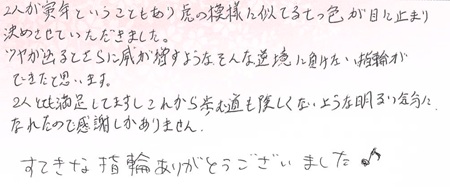 2人が寅年ということもあり虎の模様に似てる七つ色が目に止まり
決めさせていただきました。
ツヤが出るとさらに威が増すような、そんな逆境に負けない指輪が
できたと思います。
2人とも満足してますしこれから歩む道も険しくないような明るい気分に
なれたので感謝しかありません。
すてきな指輪ありがとうございました♪